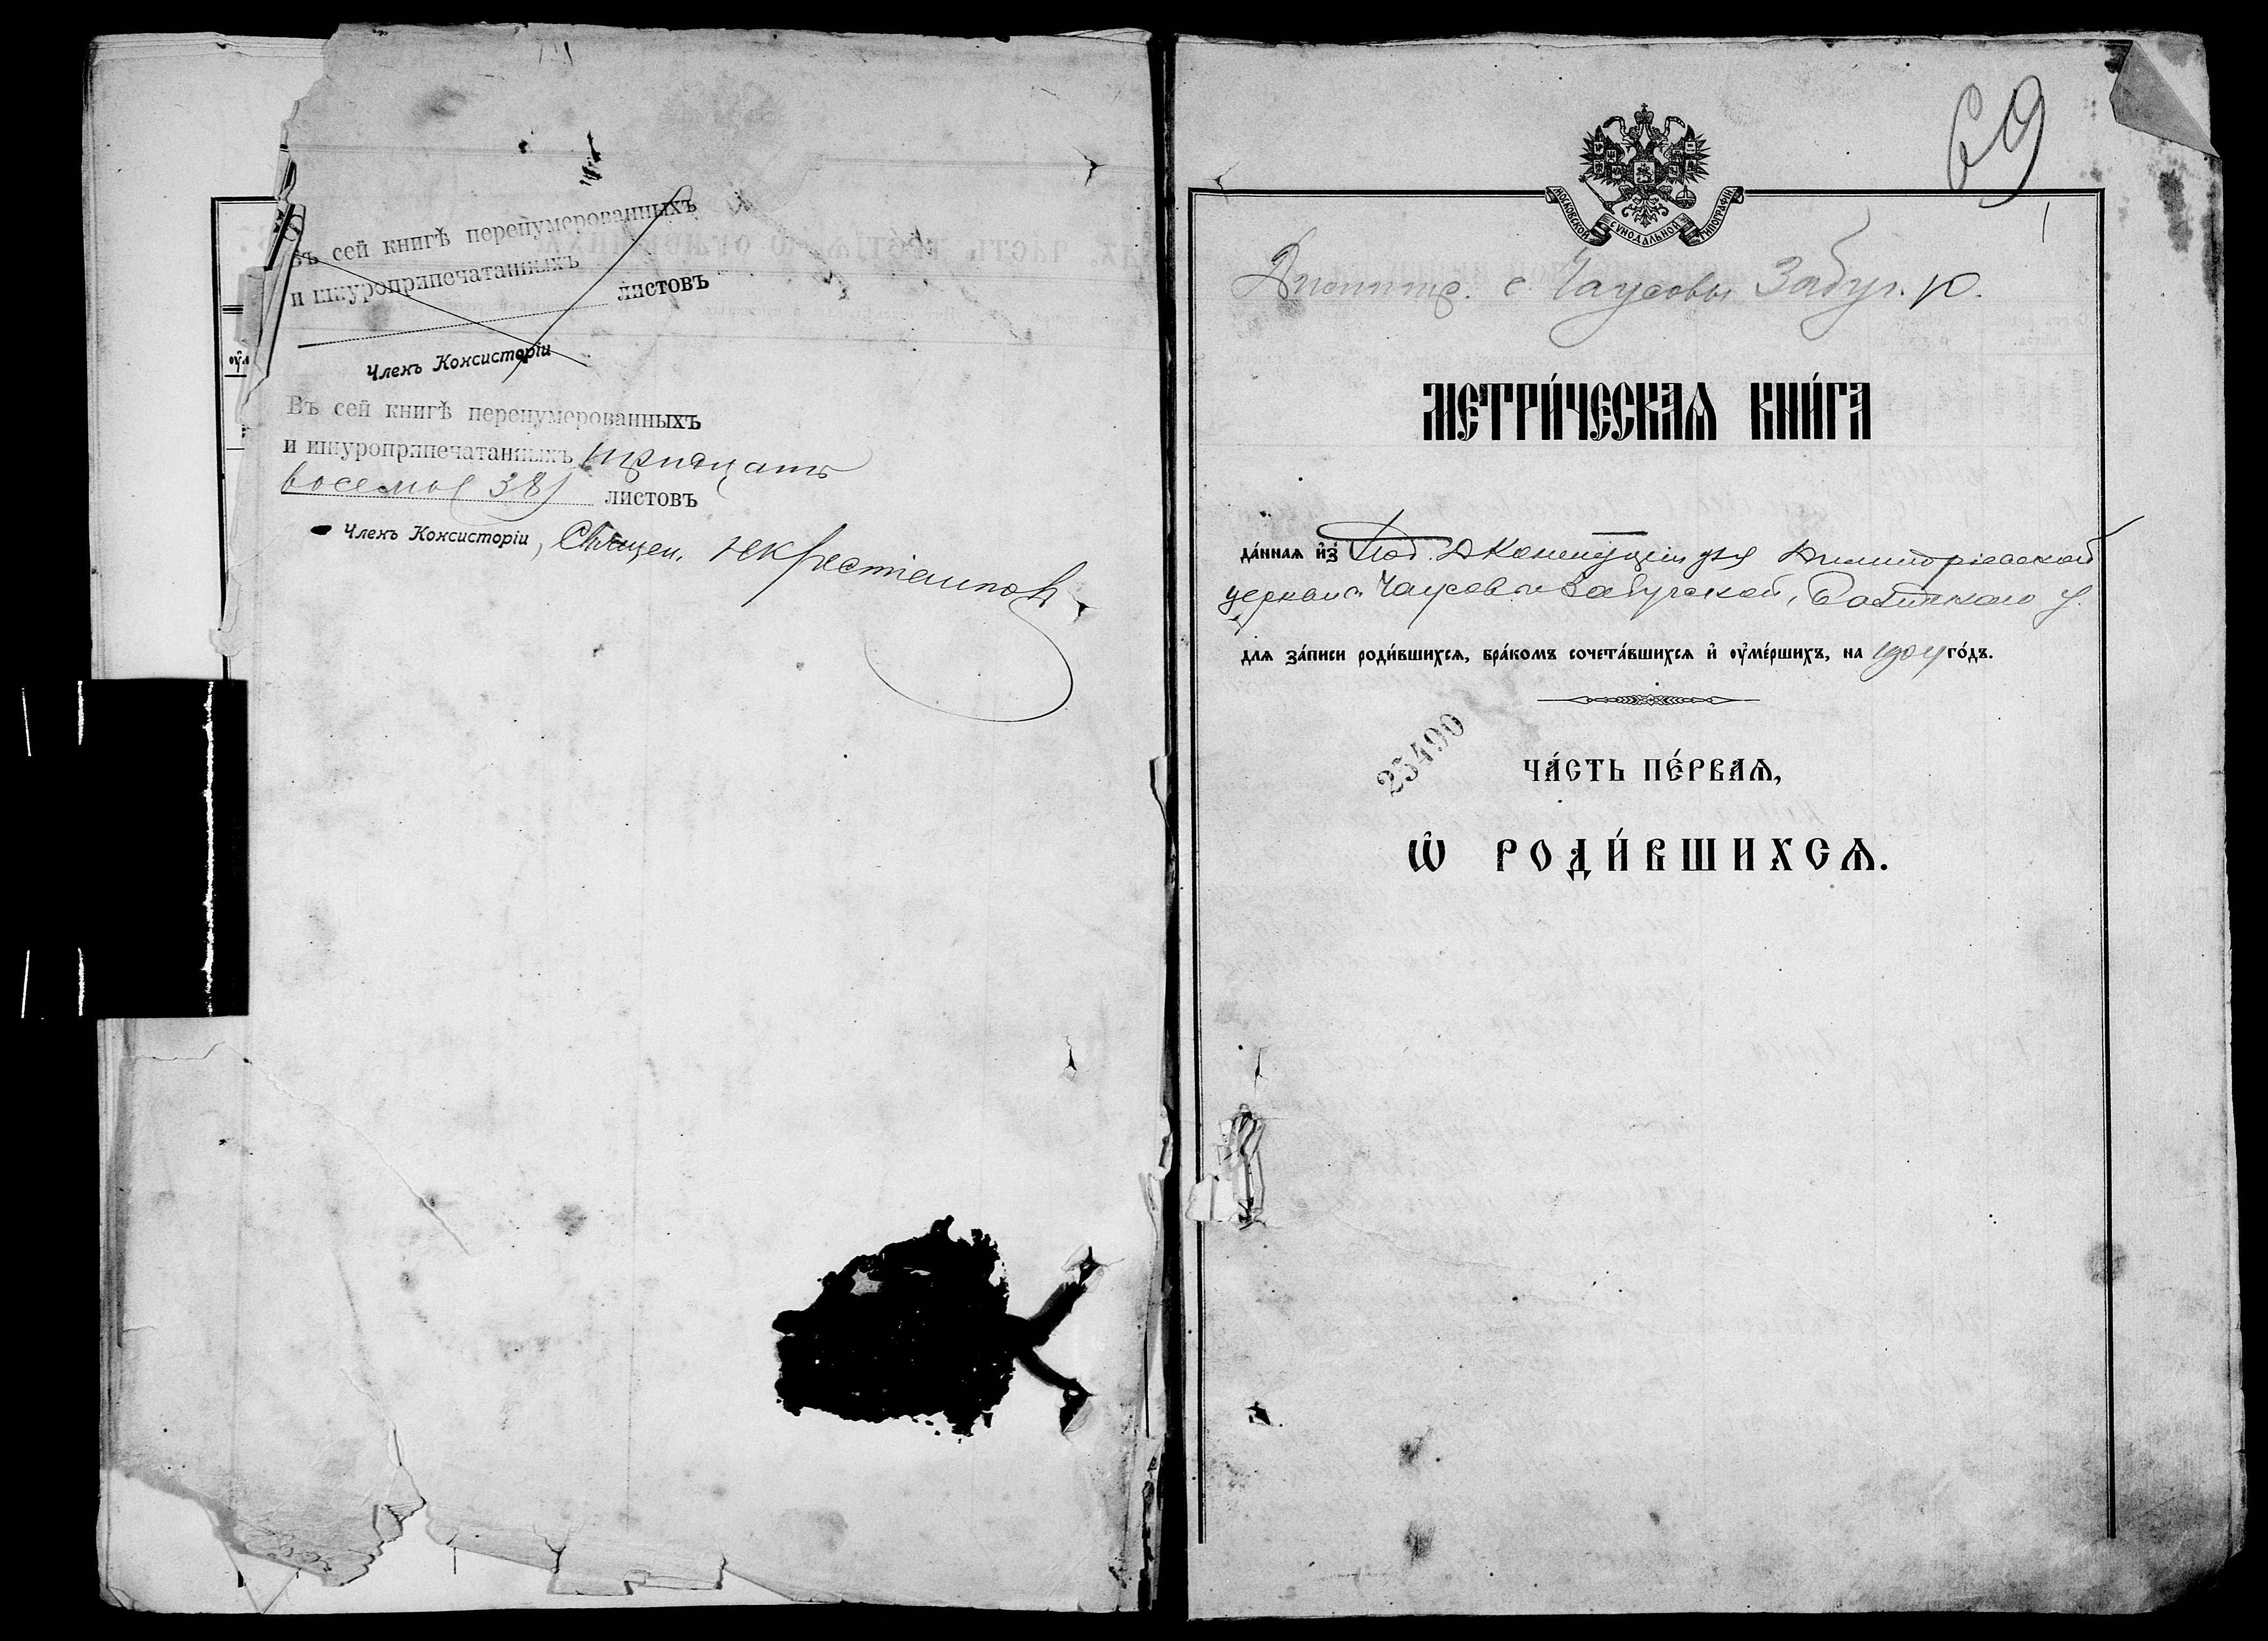 Въ сей книгѣ перенумерованныхъ
и шнуроприпечатанныхъ
листовъ
Членъ Консисторіи
Въ сей книгѣ перенумерованныхъ
и шнуроприпечатанныхъ тридцать
восемь (38) листовъ
Членъ Консисторіи, Священ. Н Крестіанповъ
69
1
МОСКОВСКОЙ СѴНОДАЛЬНОЙ ТИПОГРАФІИ
Димитр. с. Чаусовы Забуг. р.
МЕТРИ́ЧЕСКАѦ КНИ́ГА
да́ннаѧ и҆з̾ Под. Д Консисторіи для Димитріевской
церкви с. Чаусовы Забугской, Балтскаго у.
длѧ за́писи роди́вшихсѧ, бра́комъ сочета́вшихсѧ и҆ ᲂу҆ме́ршихъ, на 1904 го́дъ.
25490
ЧА́СТЬ ПЕ́РВАѦ,
Ѽ РОДИ́ВШИХСѦ.